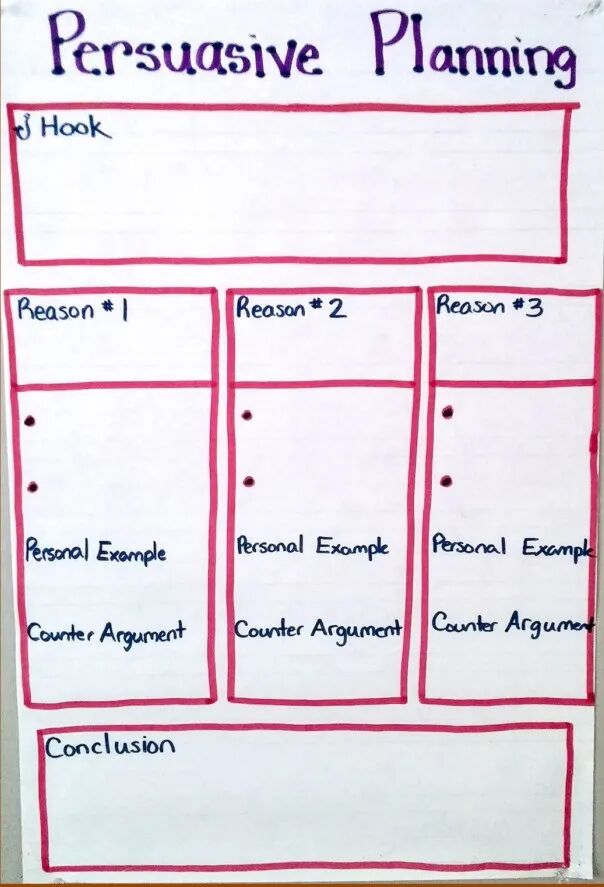 Persuasive Planning
Hook
Reason #1
Reason #2
Reason #3
•
•
Personal Example
Counter Argument
•
•
Personal Example
Counter Argument
•
•
Personal Example
Counter Argument
Conclusion